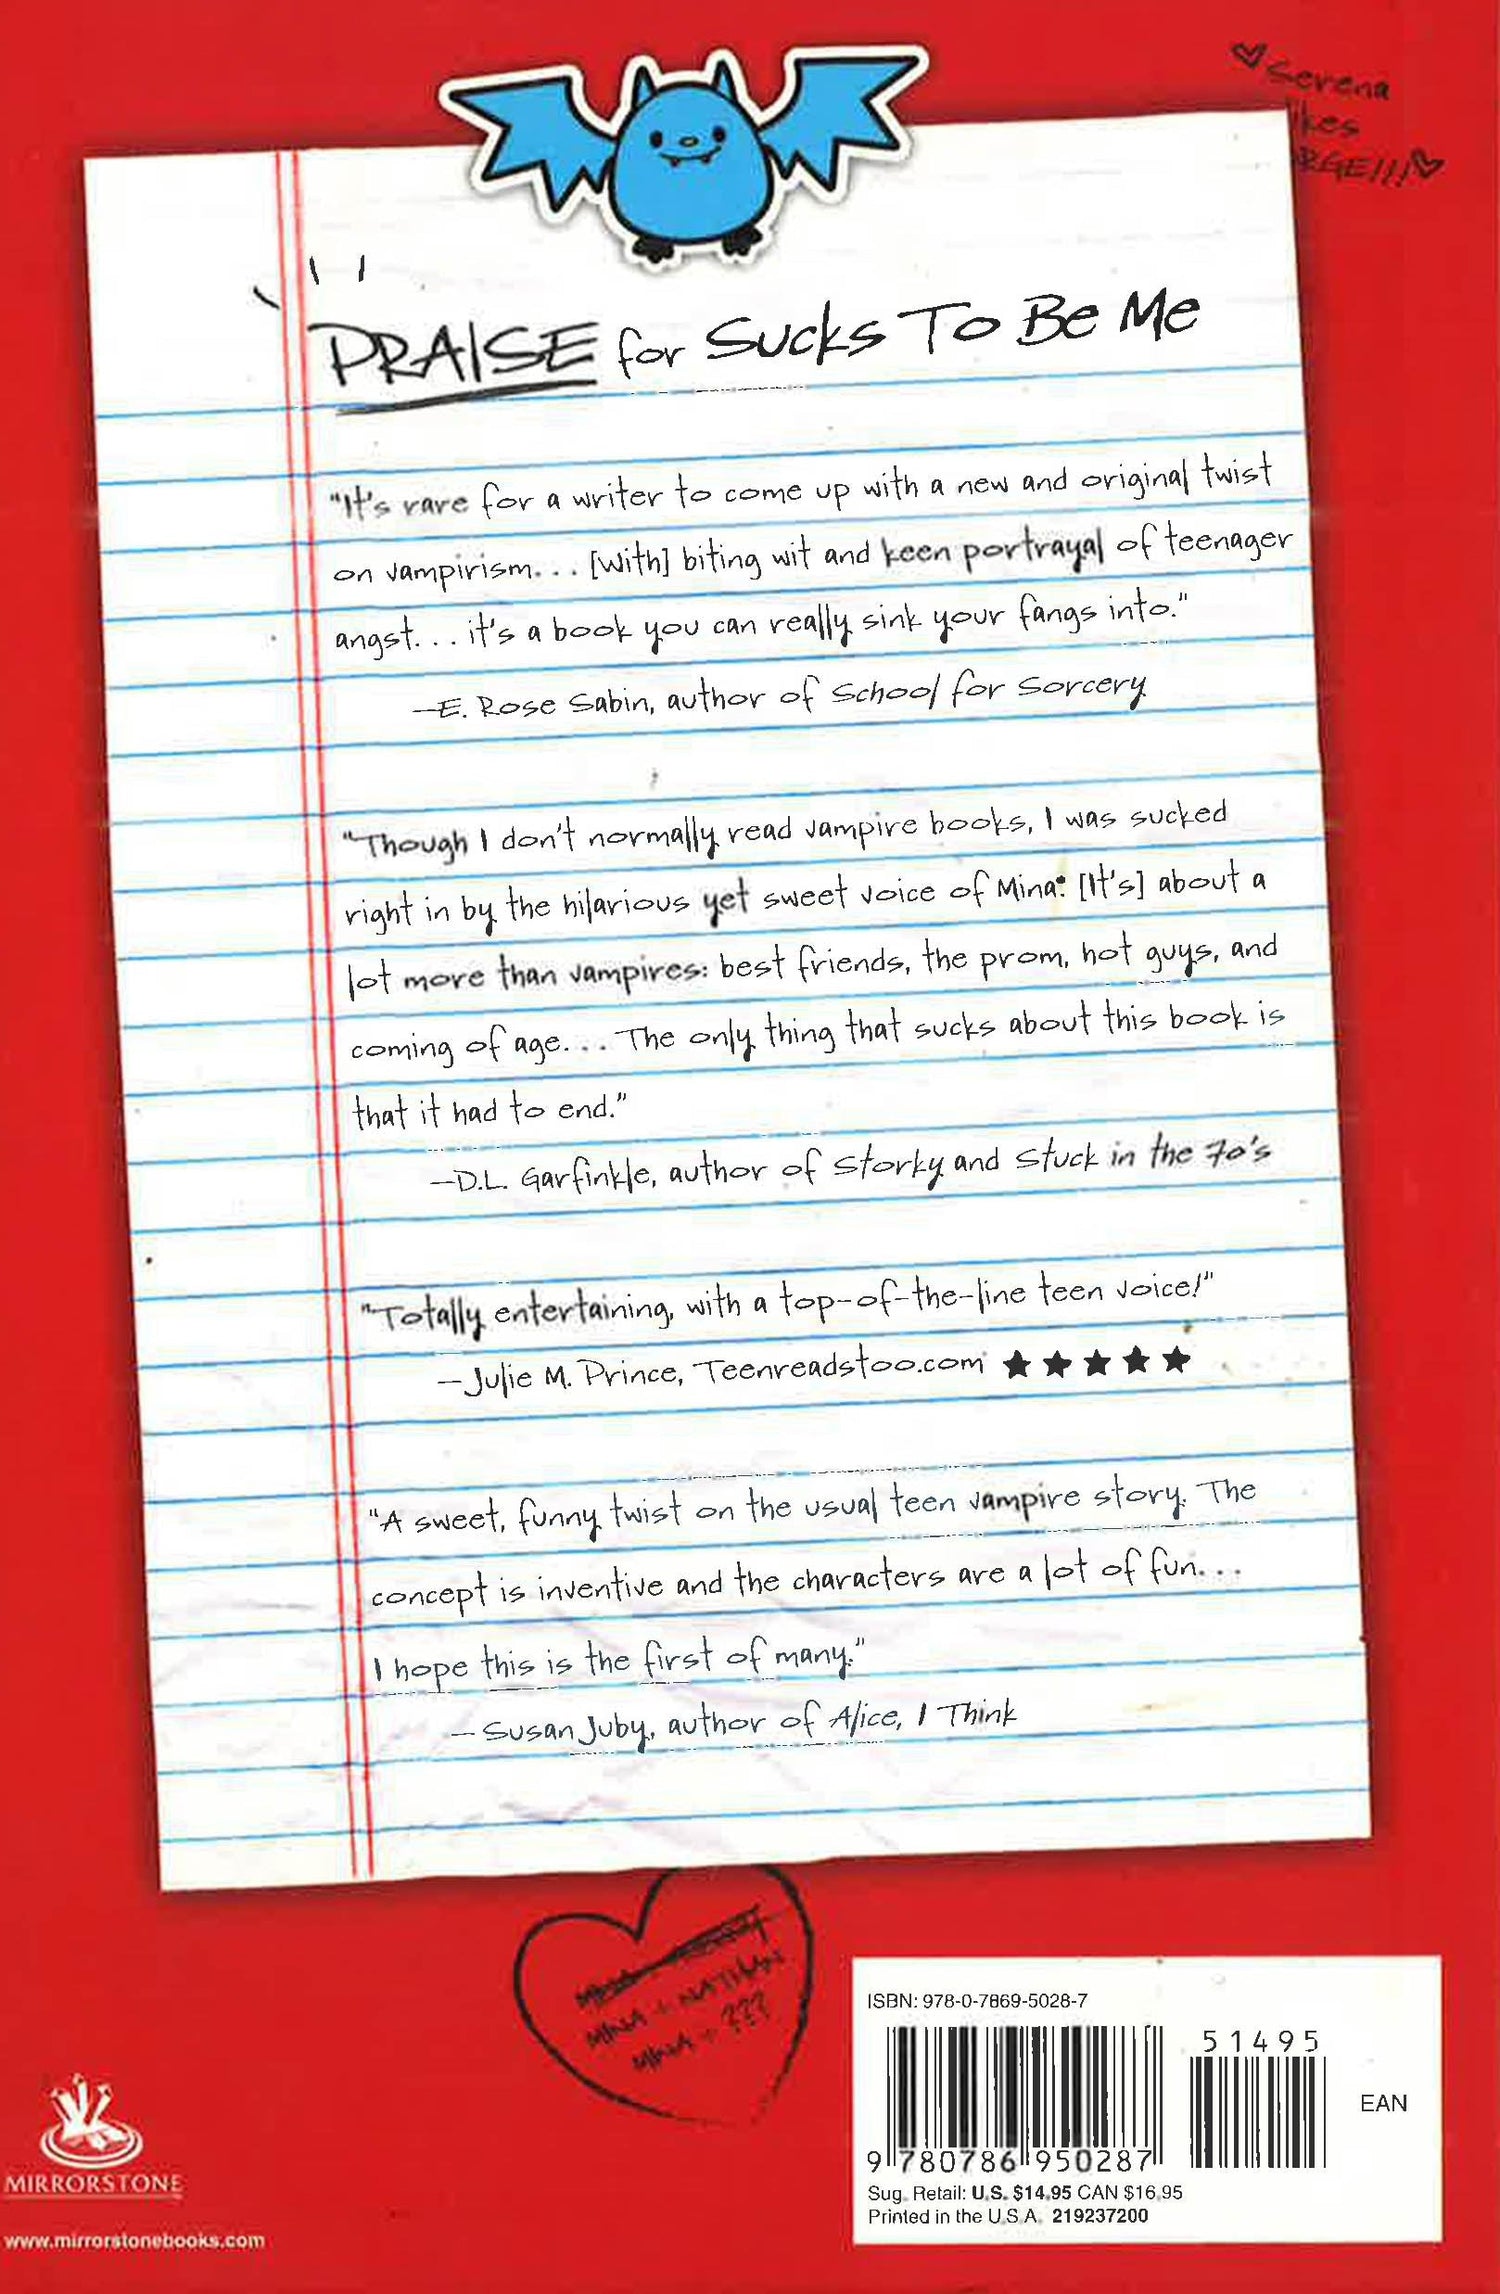 Serena
PRAISE for Sucks To Be Me
"It's rare for a writer to come up with a new and original twist
on vampirism... [With] biting wit and keen portrayal of teenager
angst... it's a book you can really sink your fangs into."
—E. Rose Sabin, author of School for Sorcery
"Though I don't normally read vampire books, I was sucked
right in by the hilarious yet sweet voice of Mina. [It's] about a
lot more than vampires: best friends, the prom, hot guys, and
coming of age... The only thing that sucks about this book is
that it had to end."
—D.L. Garfinkle, author of Storky and Stuck in the 70's
"Totally entertaining, with a top-of-the-line teen voice!"
—Julie M. Prince, Teenreadstoo.com ★★★★★
"A sweet, funny twist on the usual teen vampire story. The
concept is inventive and the characters are a lot of fun...
I hope this is the first of many."
—Susan Juby, author of Alice, I Think
MINA + NATHAN
MINA + ???
ISBN: 978-0-7869-5028-7
51495
EAN
9 780786 950287
Sug. Retail: U.S. $14.95 CAN $16.95
Printed in the U.S.A. 219237200
MIRRORSTONE
www.mirrorstonebooks.com